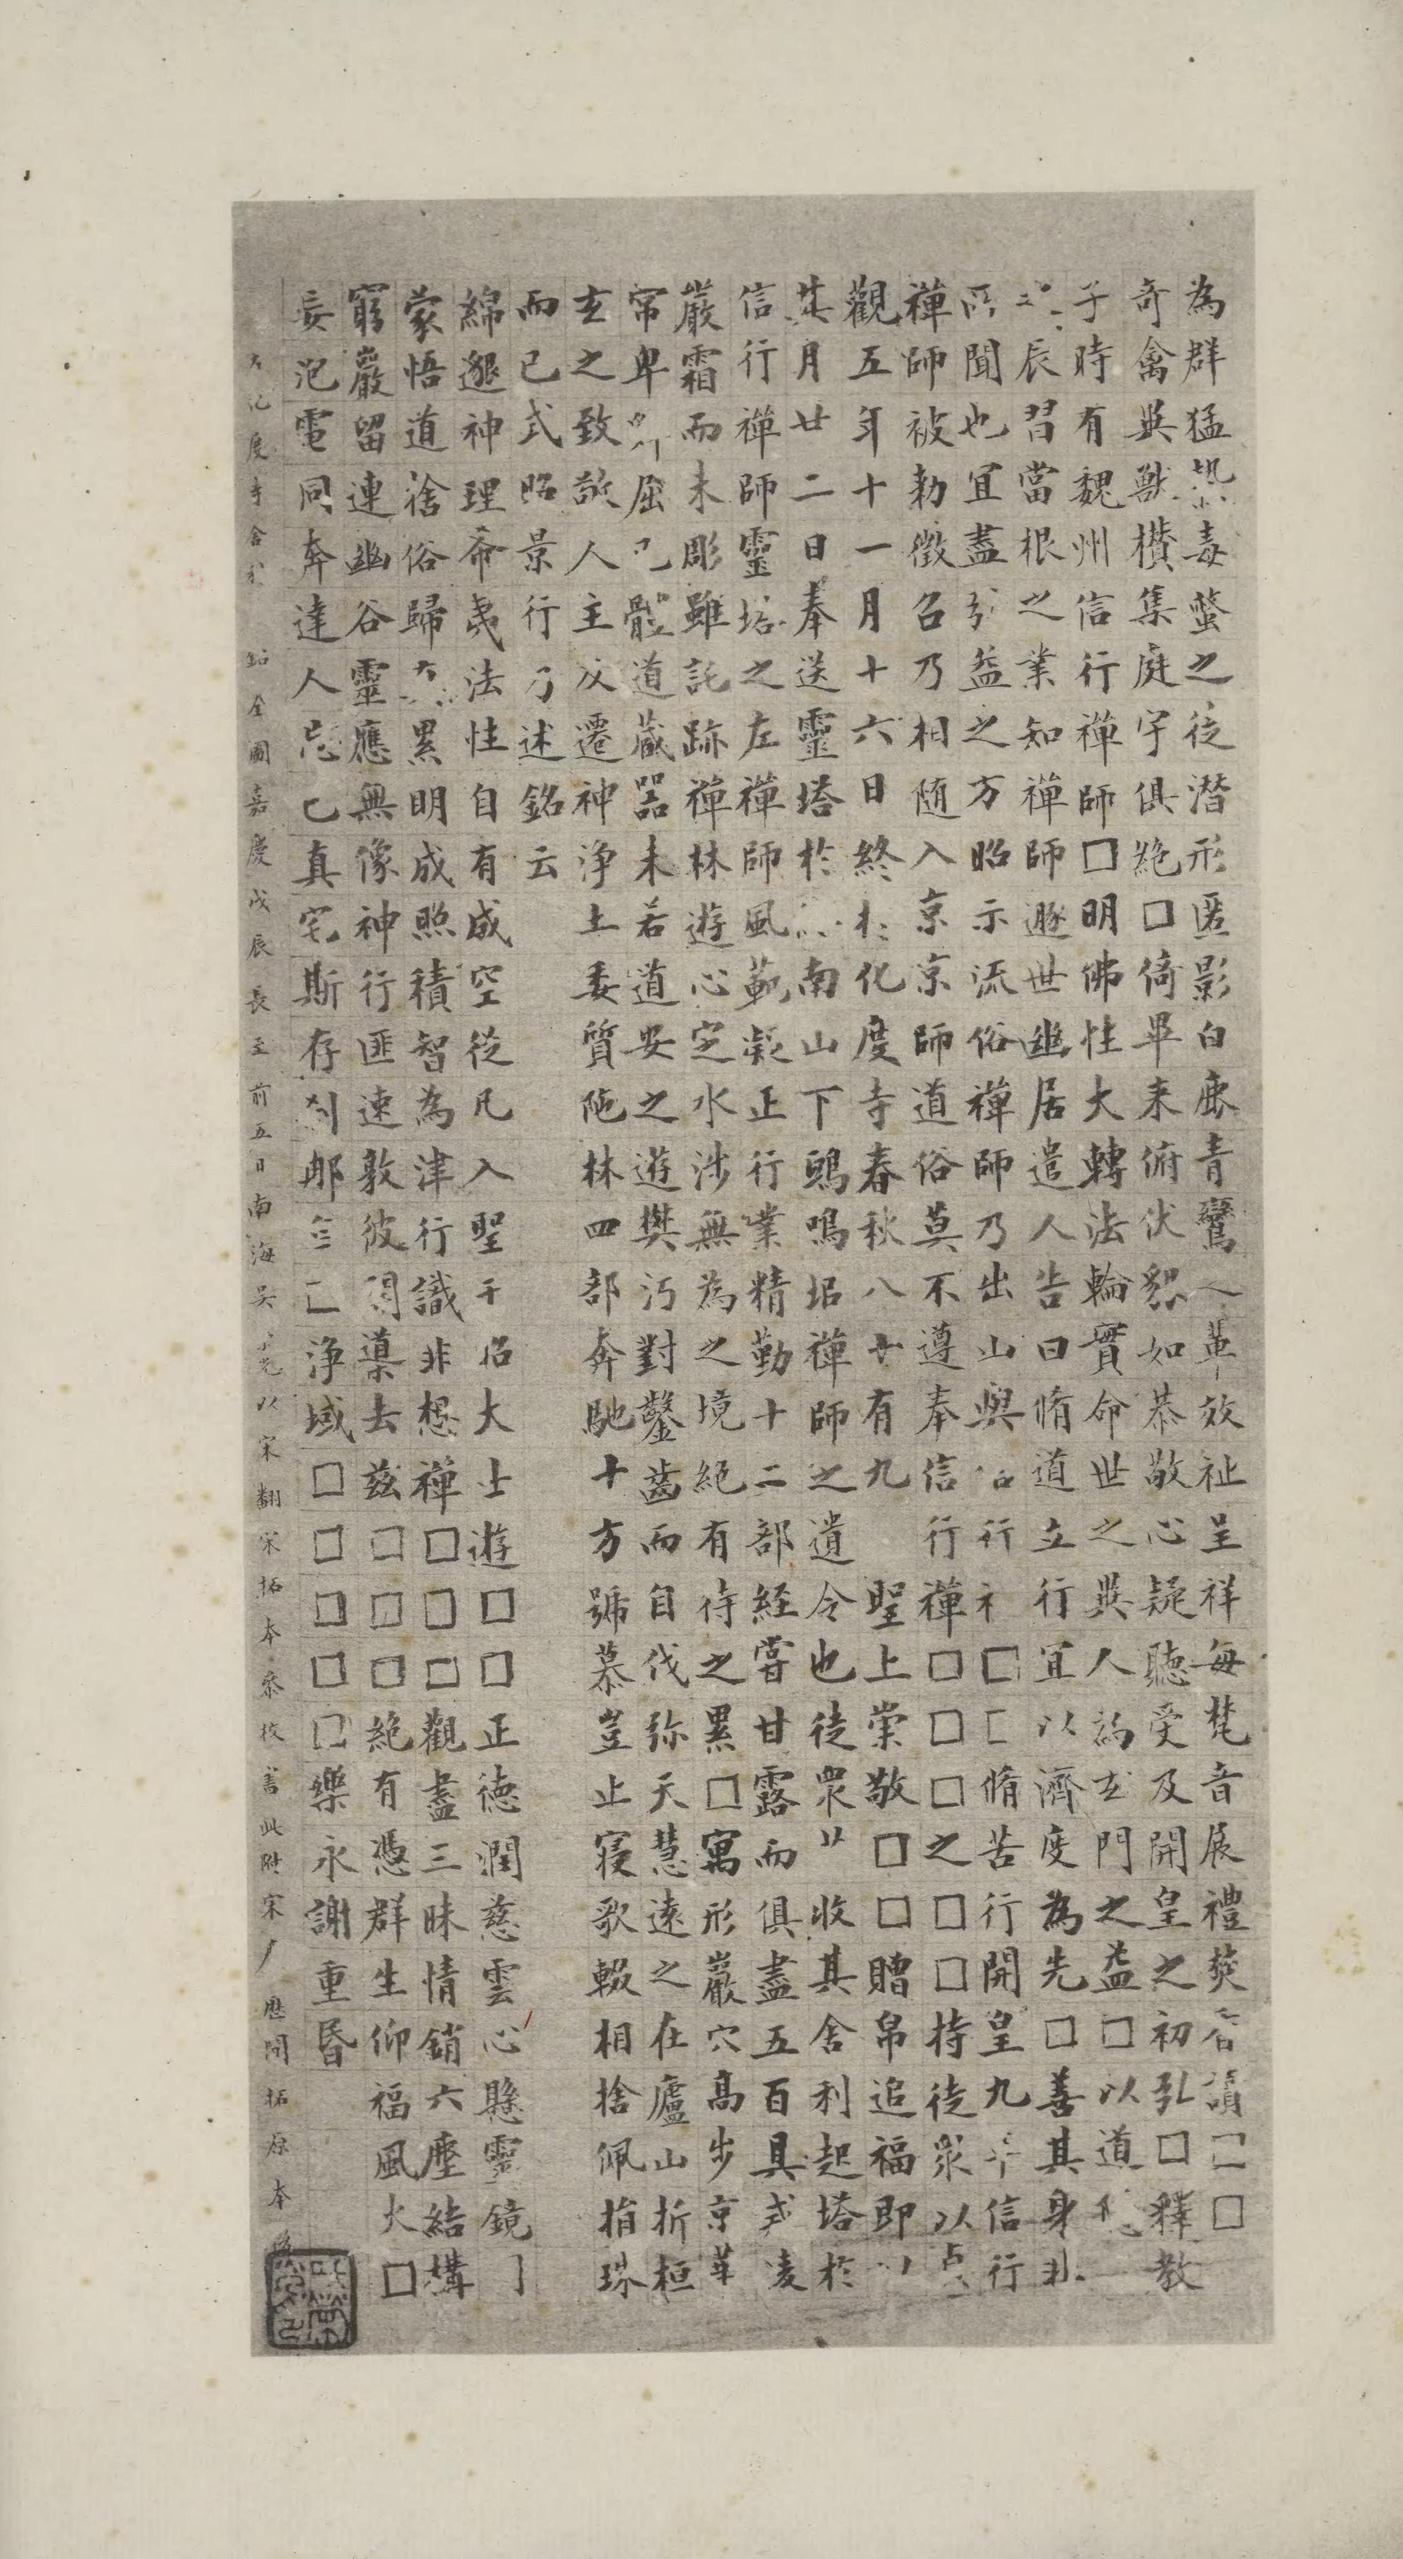 為群猛毒螫之徒潛形匿影白鹿青鸞效祉呈祥每梵音展禮焚□□
奇禽異獸攢集庭宇俱絶□倚畢来俯伏貌如恭敬心疑聽受及開皇之初弘□釋教
于時有魏州信行禪師□明佛性大轉法輪實命世之異人為玄門之益□以道
辰習當根之業知禪師遯世幽居遣人告曰脩道立行宜以濟度為先□善其身非
所聞也宜盡弘益之方昭示流俗禪師乃出山與信行□□脩苦行開皇九年信行
禪師被勅徵召乃相随入京京師道俗莫不遵奉信行禪□□□之□□持徒衆以貞
觀五年十一月十六日終於化度寺春秋八十有九 聖上崇敬□□贈帛追福即以
其月廿二日奉送靈塔於南山下鴟鳴埠禪師之遺令也徒衆收其舍利起塔於
信行禪師靈塔之左禪師風範凝正行業精勤十二部経嘗甘露而俱盡五百具戒凌
嚴霜而未彫雖託跡禪林遊心定水涉無為之境絶有待之累□寓形巖穴髙步京華
常卑屈己體道藏器未若道安之遊樊沔對鑿齒而自伐弥天慧遠之在廬山折桓
玄之致敬人主及遷神浄土委質陁林四部奔馳十方號慕豈止寝歌輟相捨佩捐珠
而已式昭景行乃述銘云
綿邈神理希夷法性自有成空從凡入聖大士遊□□正德潤慈雲心懸靈鏡
蒙悟道捨俗歸累明成照積智為津行識非想禪□□□觀盡三昧情銷六塵結構
窮巖留連幽谷靈應無像神行匪速敦彼開導去兹□□□絶有憑群生仰福風火□
妄泡電同奔達人忘己真宅斯存刹那浄域□□□□□樂永謝重昏
右化度寺舍利銘全圖嘉慶戊辰長至前五日南海吳榮光以宋翻宋拓本叅校書此附宋歷間拓原本後